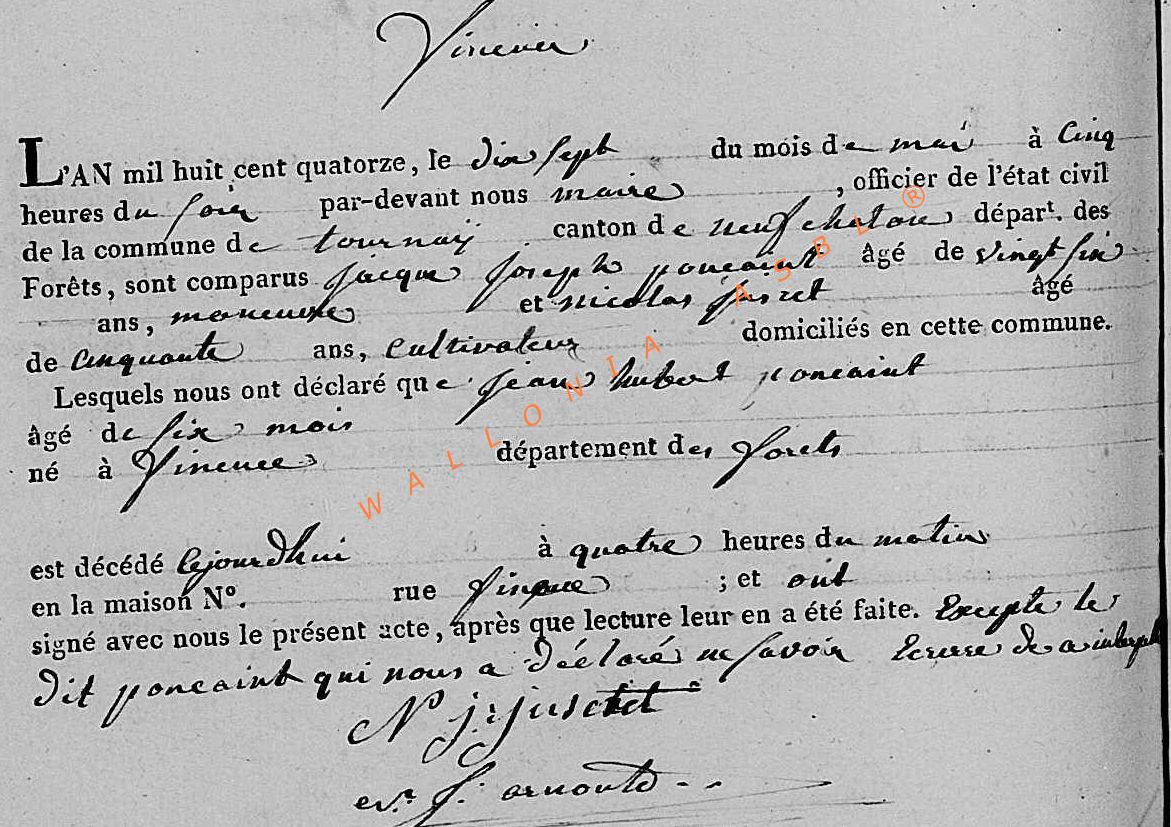 L'AN mil huit cent quatorze, le dix sept du mois de mai à Cinq
heures du soir par-devant nous maire, officier de l'état civil
de la commune de tournay canton de neufchatau départ. des
Forêts, sont comparus jacque joseph poncaint âgé de vingt six
ans, maneuvre et nicolas âgé
de Cinquante ans, Cultivateur domiciliés en cette commune.
Lesquels nous ont déclaré que jean hubert poncaint
âgé de six mois
né à département des forets
est décédé cejourdhui à quatre heures du matin
en la maison N°. rue ; et ont
signé avec nous le présent acte, après que lecture leur en a été faite. Excepte le
dit poncaint qui nous a déclaré ne savoir Ecrire de
N j:
arnould
WALLONIA ASBL ®